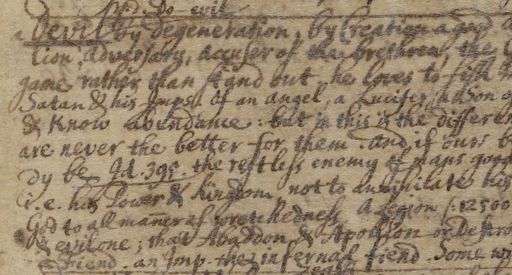 Do evil
a Devil by degeneration, by Creation a good a
tion, adversary, accuser of the brethren, the
game rather than stand out. he loves to fish
Satan & his Imps. of an angel, a Lucifer, a son
& know abundance. but in this is the differen
are never the better for them. and if ours b
dy be Id. 395. the restless enemy of mans good
i.e. his Power & kingdom, not to annihilate his
God to all maner of wretchedness, a Legion 12500
& evil one; that Abaddon & Apollyon or Destro
a fiend. an Imp. the infernal fiend. Some wr